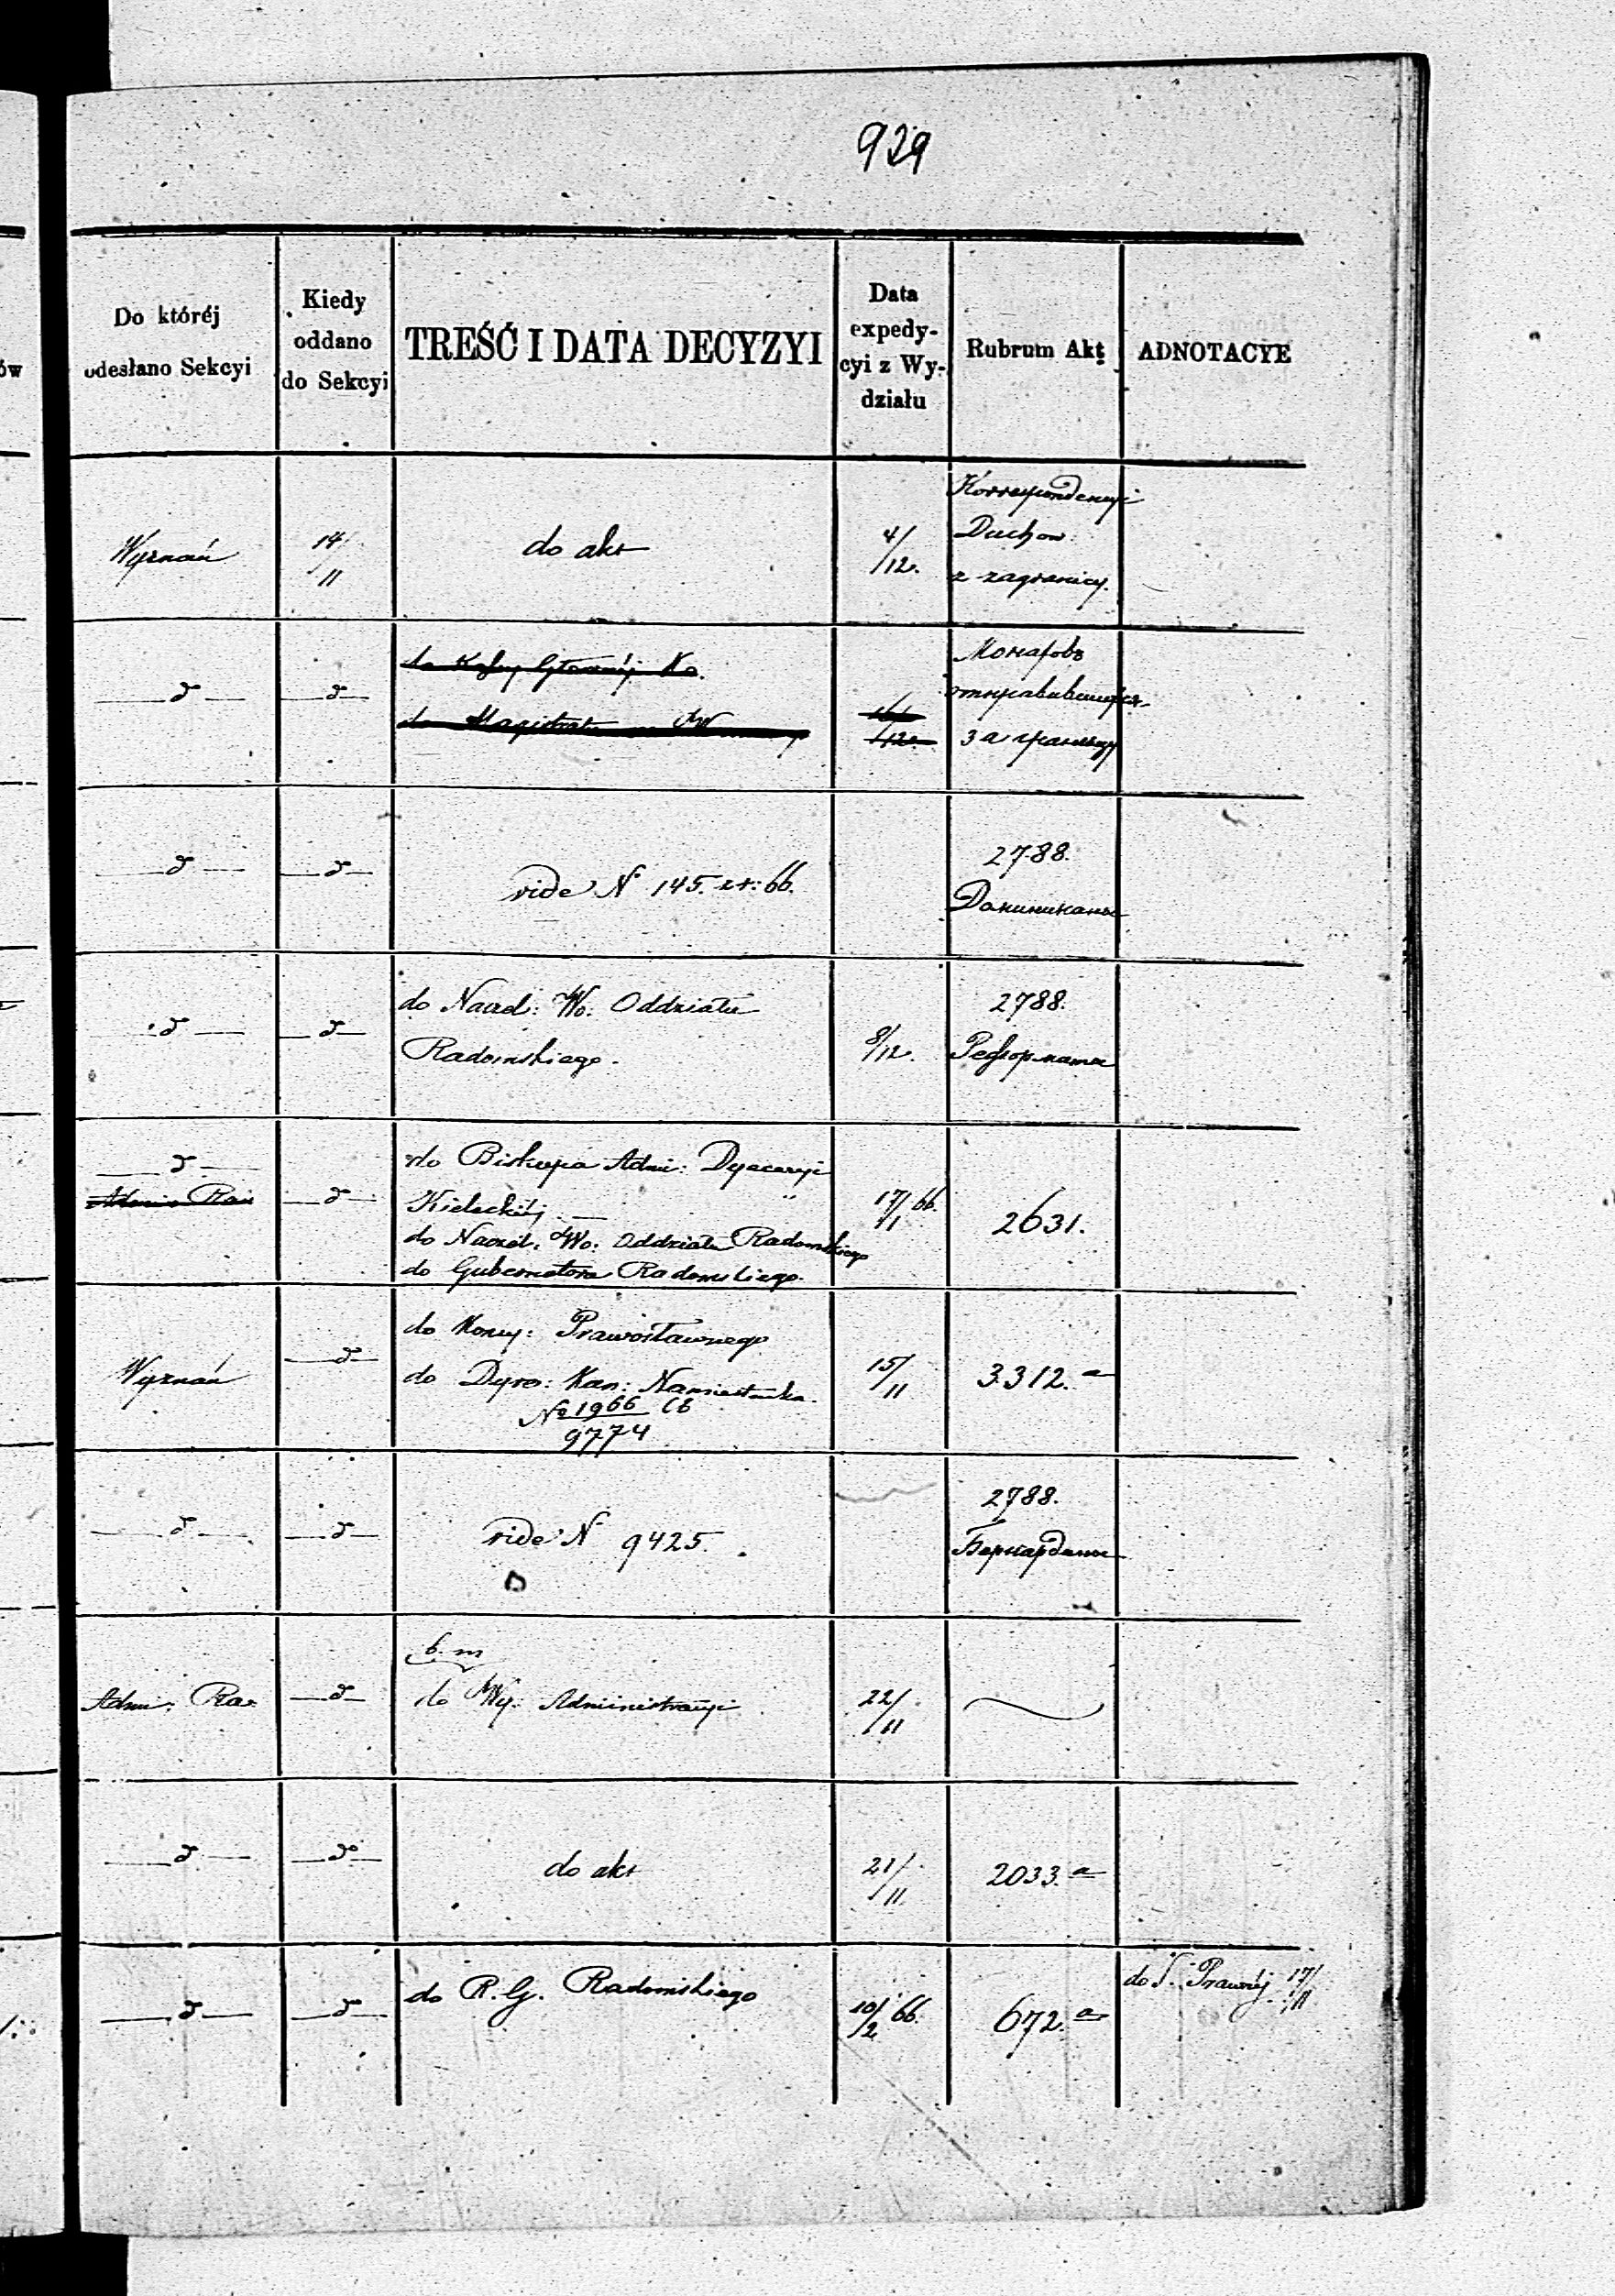 929
Do któréj
odesłano Sekcyi
Kiedy
oddano
do Sekcyi
TREŚĆ I DATA DECYZYI
Data
expedy-
cyi z Wy-
działu
Rubrum Akt
ADNOTACYE
ów
Wyznań
14/11
do akt
4/12.
Korrespondencyi
Duchow:
z zagranicy.
d
d
do Kassy Głównéj Ko.
do Magistratu
16/12.
Монахов
за границу
d
d
vide N 145. z r: 66.
2788.
Доминикане
d
d
do Naczel: Wo: Oddziału
Radomskiego.
8/12.
2788.
Реформати
d
Admi: Ra:
d
do Biskupa Admi: Dyecezyi
Kieleckiéj
do Naczel: Wo: Oddziału Radomskiego
do Gubernatora Radomskiego.
17/1 66.
2631.
Wyznań
d
do Konsy: Prawosławnego
do Dyre: Kan: Namiestnika
№ 1966
9774
15/11
3312. a
d
d
vide N 9425.
2788.
Бернардине
Admi: Ra:
d
b. m
do Wy: Administracyi
22/11
d
do
do akt
21/11.
2033. a
d
d
do R. G. Radomskiego
10/2 66.
672. a
do S. Prawnéj 17/11